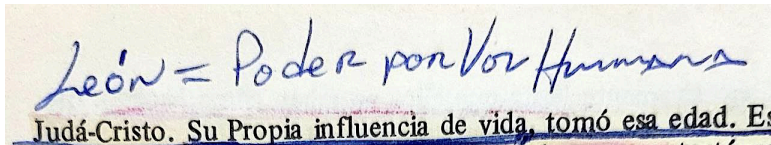 León = Poder por Voz Humana
Judá-Cristo. Su Propia influencia de vida, tomó esa edad. Es